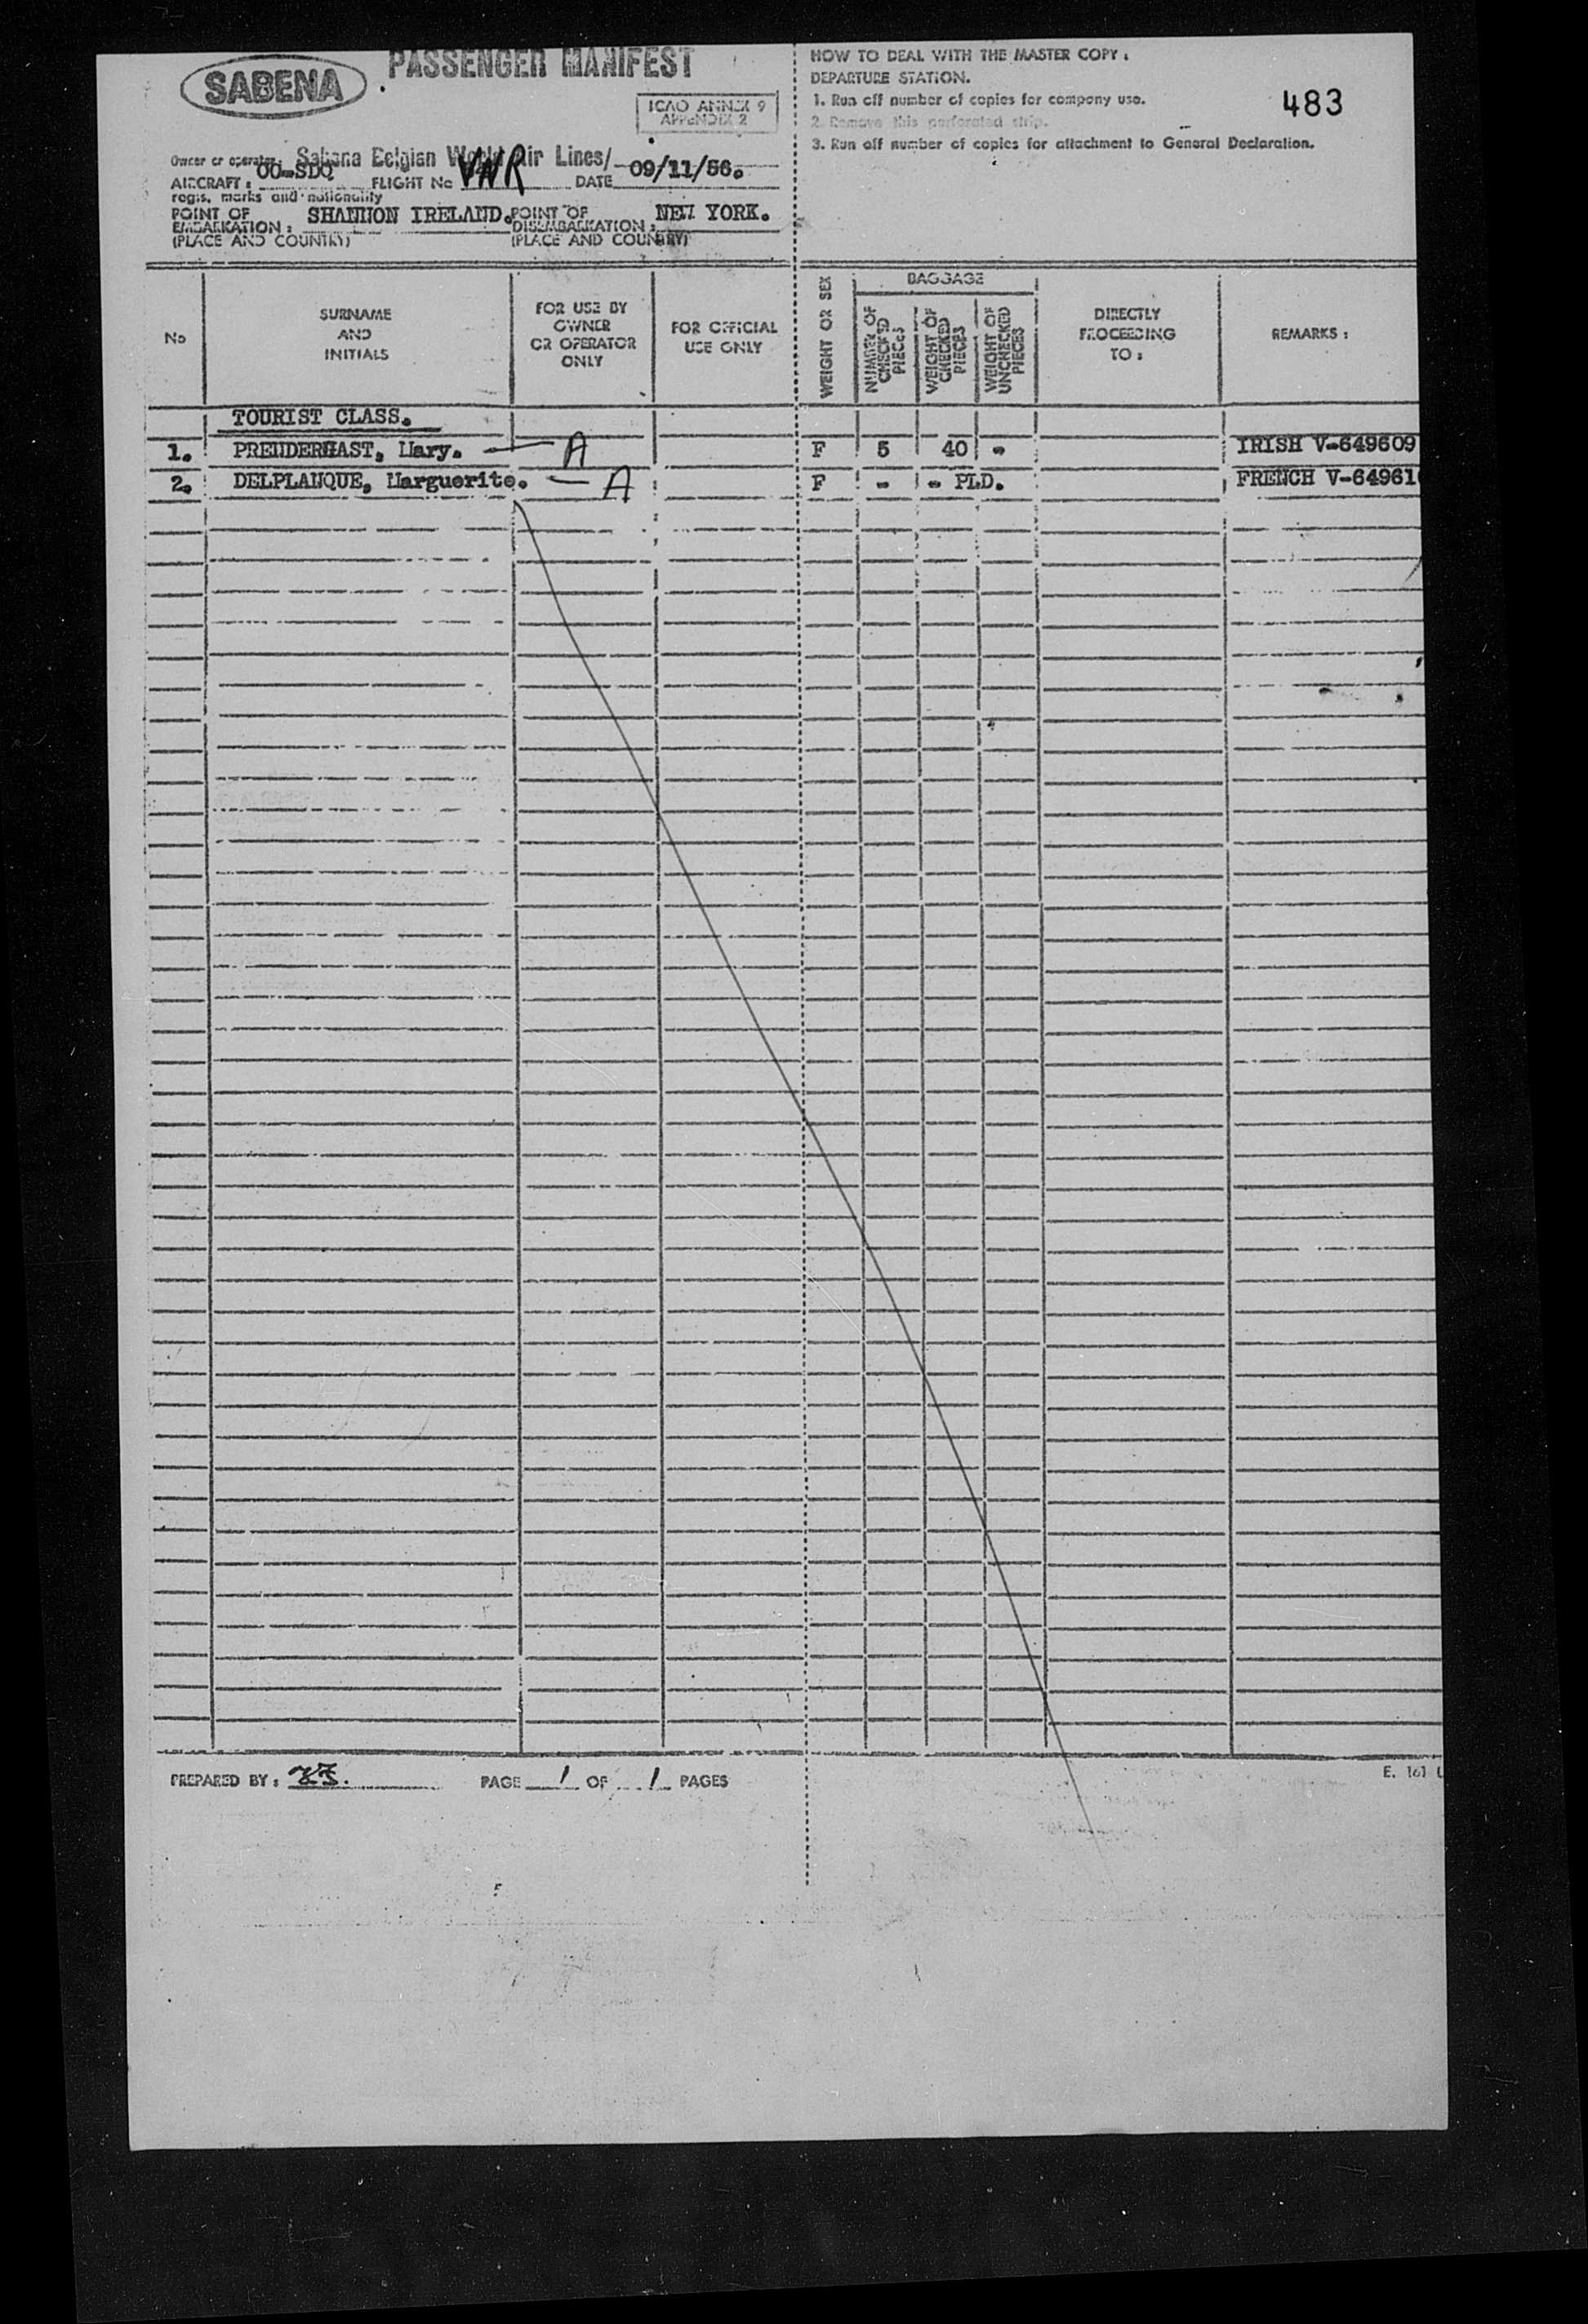 SABENA
PASSENGER MANIFEST
ICAO ANNEX 9
APPENDIX 2
Owner or operator: Sabena Belgian World Air Lines/
AIRCRAFT: OO-SDQ FLIGHT No DATE 09/11/56.
regis. marks and nationality
POINT OF EMBARKATION: SHANNON IRELAND. POINT OF DISEMBARKATION: NEW YORK.
(PLACE AND COUNTRY) (PLACE AND COUNTRY)
HOW TO DEAL WITH THE MASTER COPY:
DEPARTURE STATION.
1. Run off number of copies for company use.
2. Remove this perforated strip.
3. Run off number of copies for attachment to General Declaration.
483
No
SURNAME
AND
INITIALS
FOR USE BY
OWNER
OR OPERATOR
ONLY
FOR OFFICIAL
USE ONLY
WEIGHT OR SEX
BAGGAGE
NUMBER OF CHECKED PIECES
WEIGHT OF CHECKED PIECES
WEIGHT OF UNCHECKED PIECES
DIRECTLY
PROCEEDING
TO:
REMARKS:
TOURIST CLASS.
1. PRENDERGAST, Mary. — A F 5 40 - IRISH V-649609
2. DELPLANQUE, Marguerite. — A F - - PLD. FRENCH V-64961
PREPARED BY: PAGE 1 OF 1 PAGES
E. 161